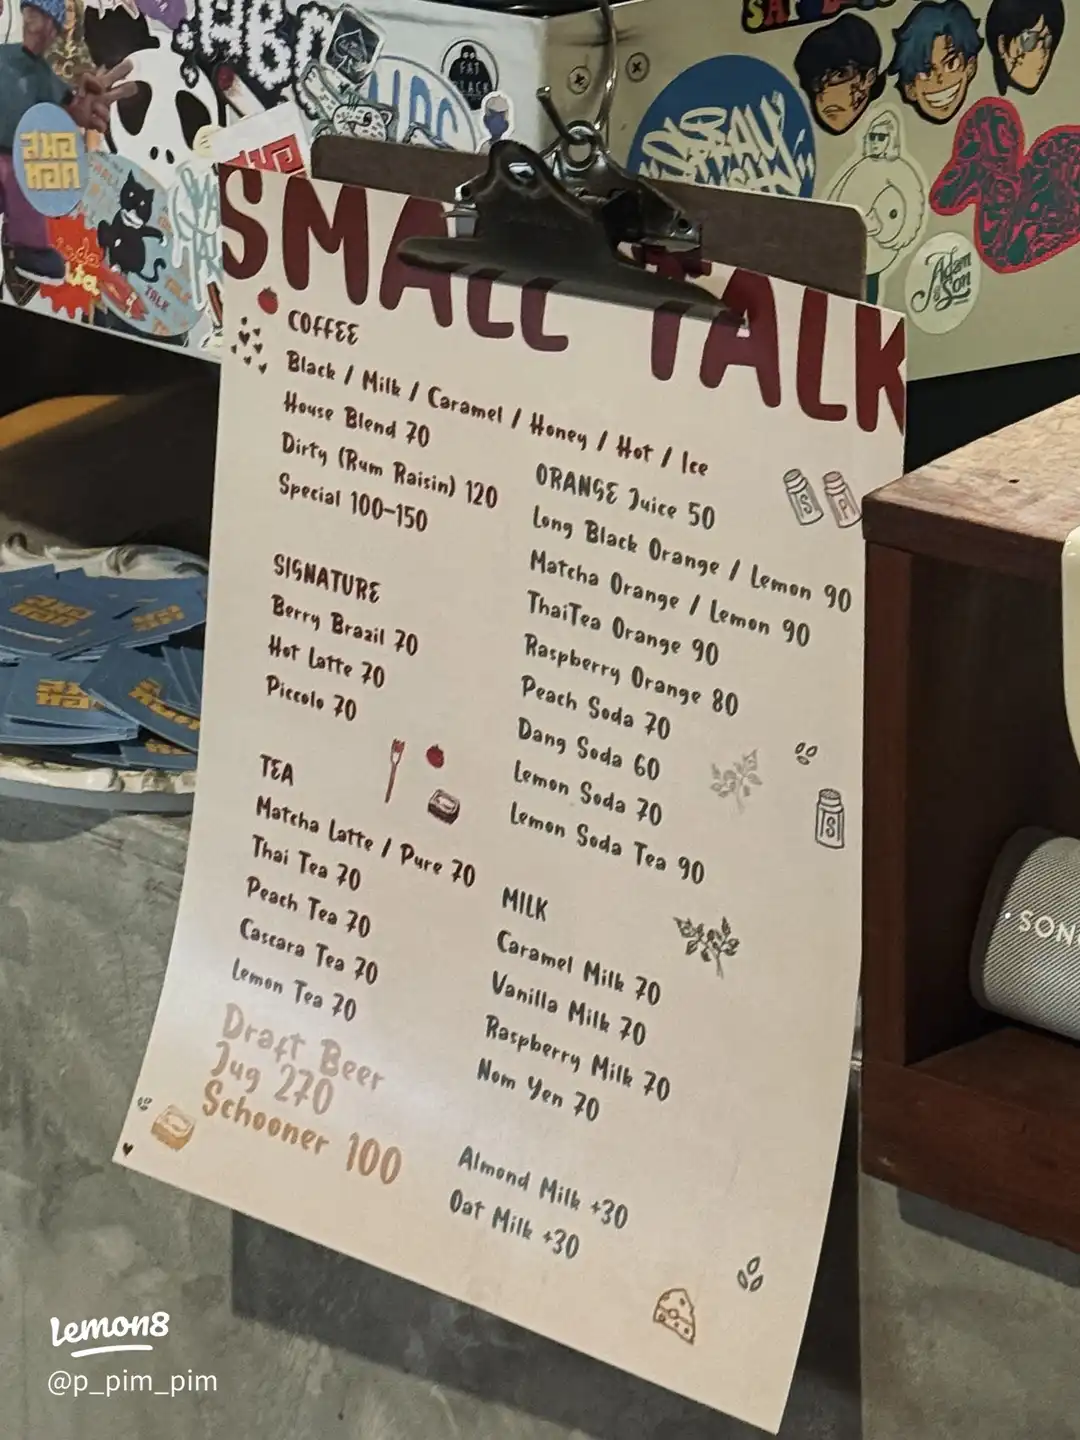 SMALL TALK
COFFEE
Black / Milk / Caramel / Honey / Hot / Ice
House Blend 70
Dirty (Rum Raisin) 120
Special 100-150
SIGNATURE
Berry Brazil 70
Hot Latte 70
Piccolo 70
TEA
Matcha Latte / Pure 70
Thai Tea 70
Peach Tea 70
Cascara Tea 70
Lemon Tea 70
Draft Beer
Jug 270
Schooner 100
ORANGE Juice 50
Long Black Orange / Lemon 90
Matcha Orange / Lemon 90
ThaiTea Orange 90
Raspberry Orange 80
Peach Soda 70
Dang Soda 60
Lemon Soda 70
Lemon Soda Tea 90
MILK
Caramel Milk 70
Vanilla Milk 70
Raspberry Milk 70
Nom Yen 70
Almond Milk +30
Oat Milk +30
S P
S
Adam & Son
SPRAY
FAT BLACK
SON
Lemon8
@p_pim_pim